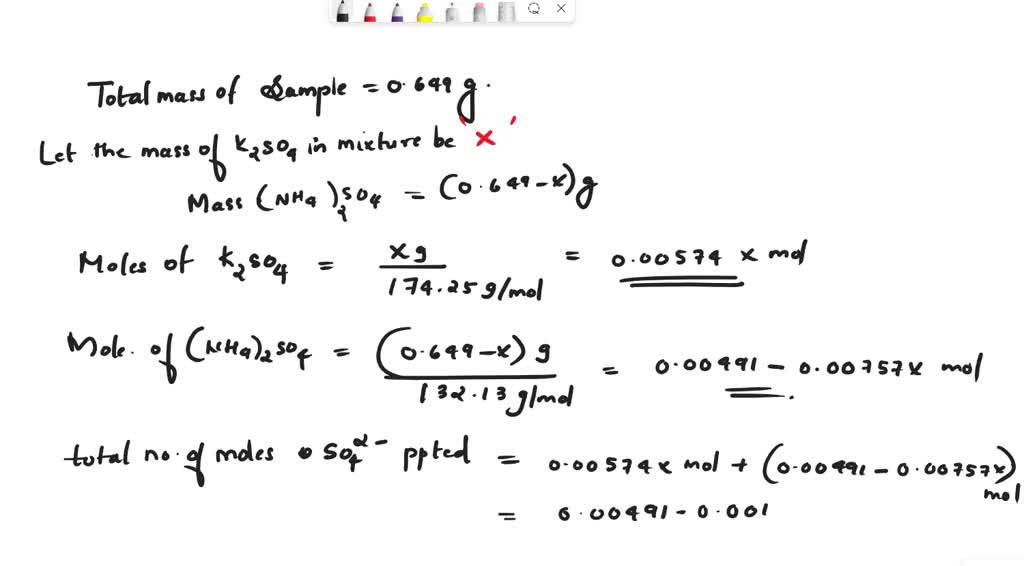 Total mass of Sample = 0.649 g.
Let the mass of K2SO4 in mixture be 'x'
Mass (NH4)2SO4 = (0.649-x)g
Moles of K2SO4 = xg / 174.25 g/mol = 0.00574 x mol
Mole. of (NH4)2SO4 = (0.649-x) g / 132.13 g/mol = 0.00491 - 0.00757x mol
total no. of moles o SO4^2- ppted = 0.00574x mol + (0.00491 - 0.00757x) mol
= 0.00491 - 0.001